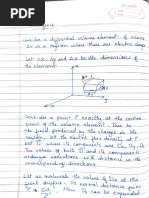 Consider a differential volume element of volume
ΔV in a region where there are electric charges
Let Δx, Δy and Δz be the dimensions of
the element
Consider a point P exactly at the centre
point of the volume element. Due to
the field produced by the charges in the
region, let the electric flux density at P be
D whose components are Dx, Dy,
The value of both D and its components
undergo variations with distance in the
corresponding directions.
Let us evaluate the values of Dx at the
front surface. Its normal distance from
P is